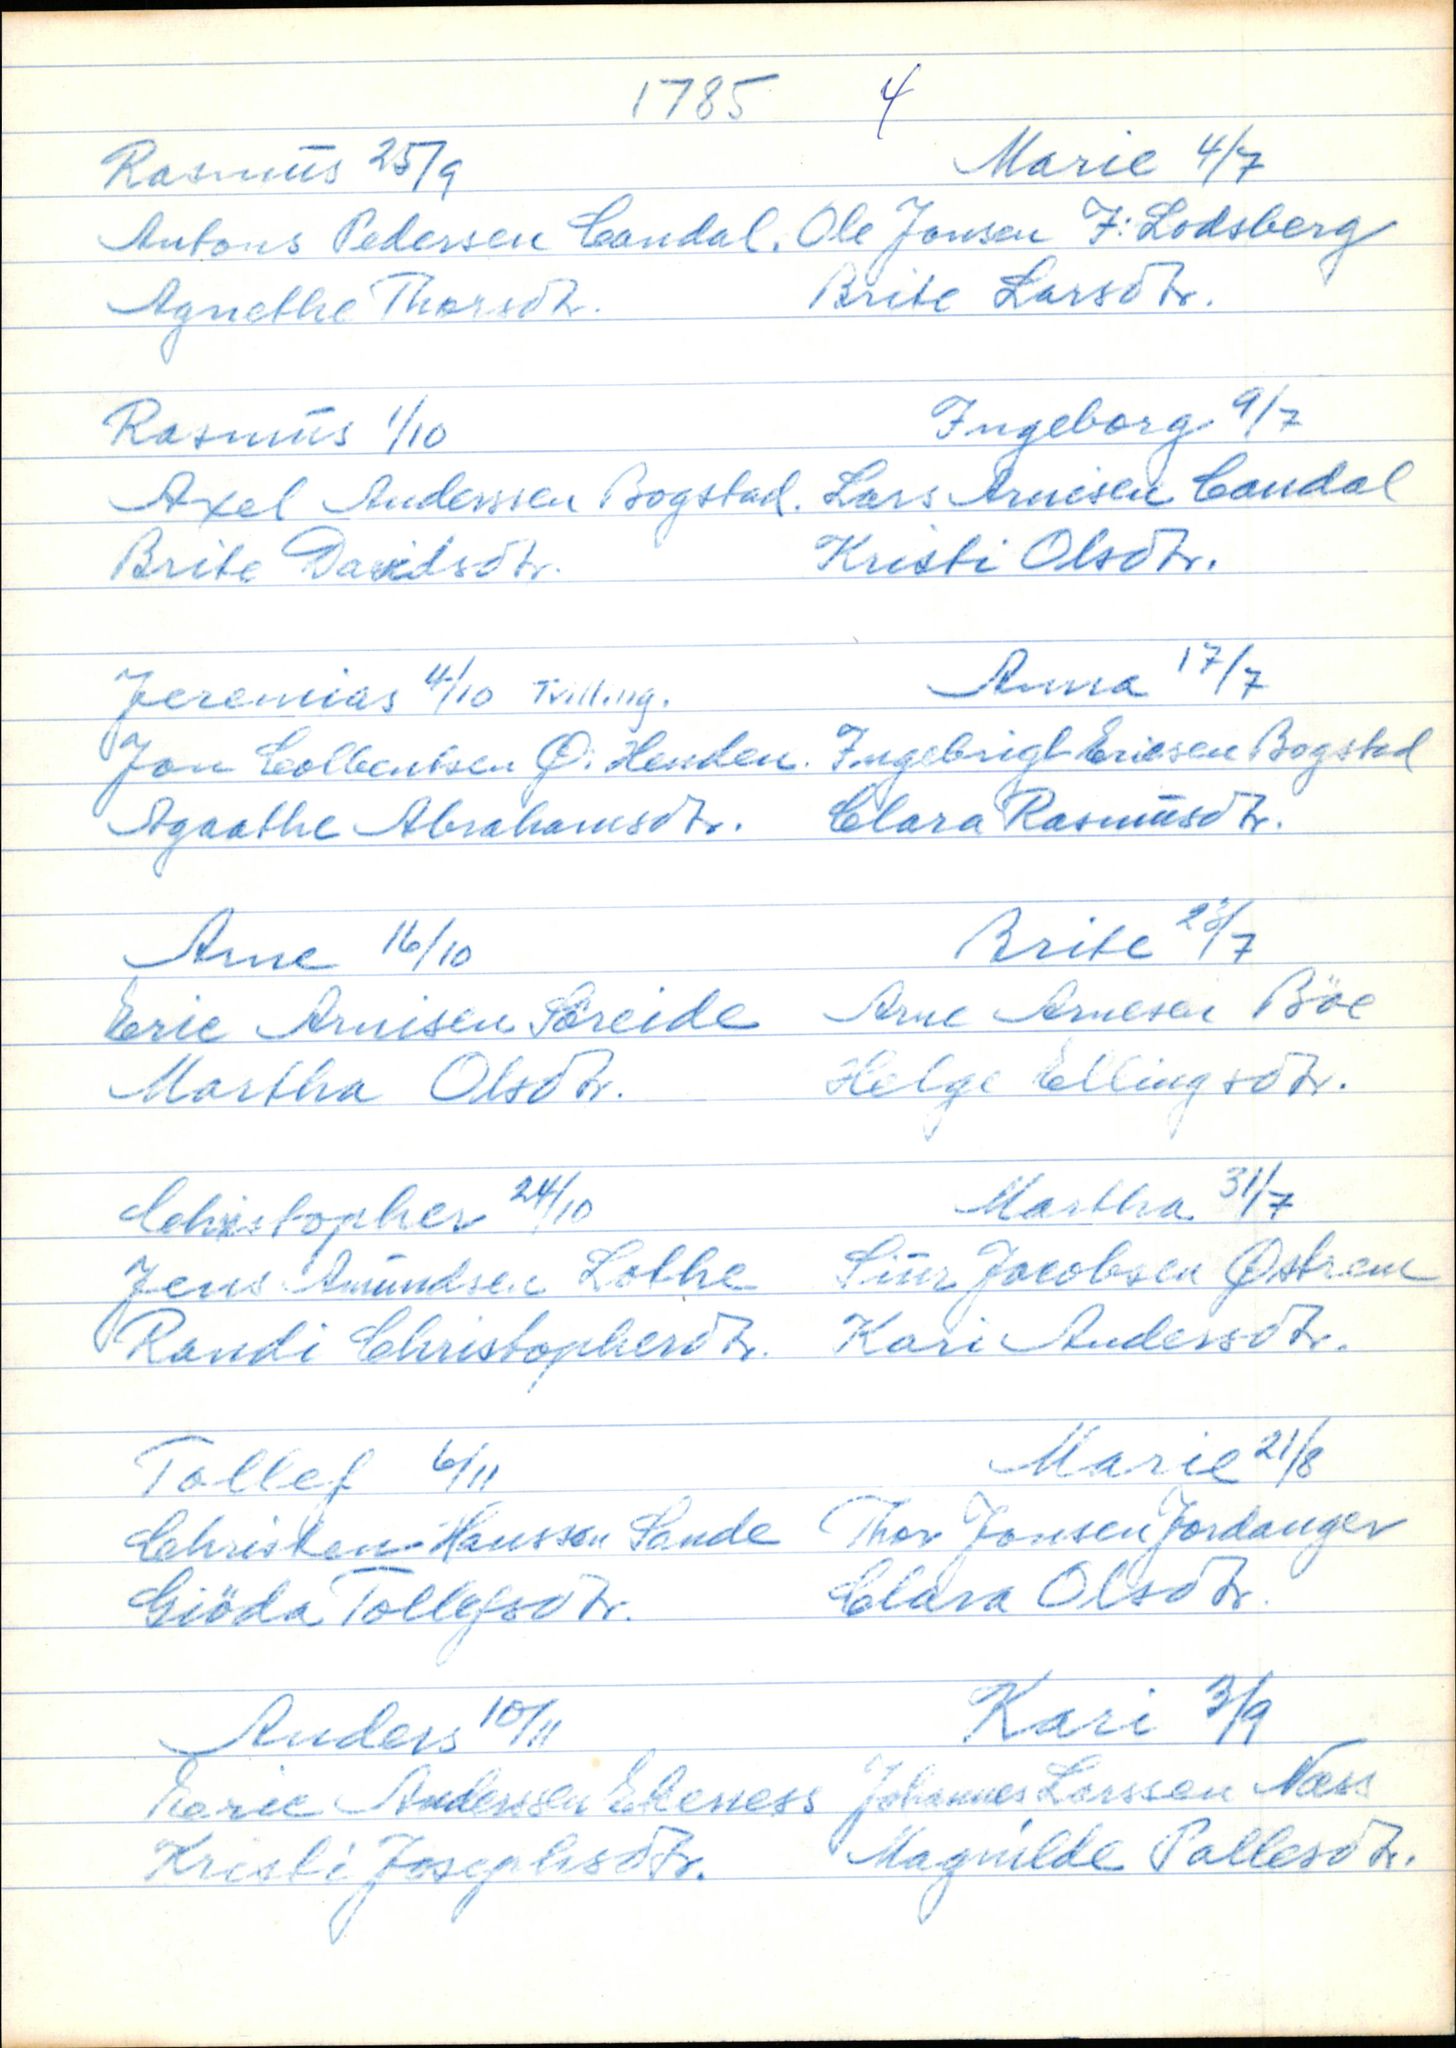 1785 4
Rasmus 25/9
Antons Pedersen Candal.
Agnethe Thorsdtr.
Rasmus 1/10
Axel Anderssen Bogstad.
Brite Davidsdtr.
Jeremias 4/10 Tvilling.
Jon Colbentsen Ø: Henden.
Agaathe Abrahamsdtr.
Arne 16/10
Eric Arnisen Søreide
Martha Olsdtr.
Christopher 24/10
Jens Amundsen Lothe
Randi Christopherdtr.
Tollef 6/11
Christen Hanssen Sande
Giöda Tollefsdtr.
Anders 10/11
Anderssen
Kristi Josephsdtr.
Marie 4/7
Ole Jonsen I: Lodsberg
Brite Larsdtr.
Ingeborg 9/7
Lars Arnesen Candal
Kristi Olsdtr.
Anna 17/7
Ingebrigt Ericsen Bogstad
Clara Rasmusdtr.
Brite 23/7
Arne Arnesen Böe
Helge Ellingsdtr.
Martha 31/7
Siur Jacobsen Østrem
Kari Andersdtr.
Marie 21/8
Thor Jonsen Jordanger
Clara Olsdtr.
Kari 3/9
Johannes Larssen Næss
Magnilde Pallesdtr.